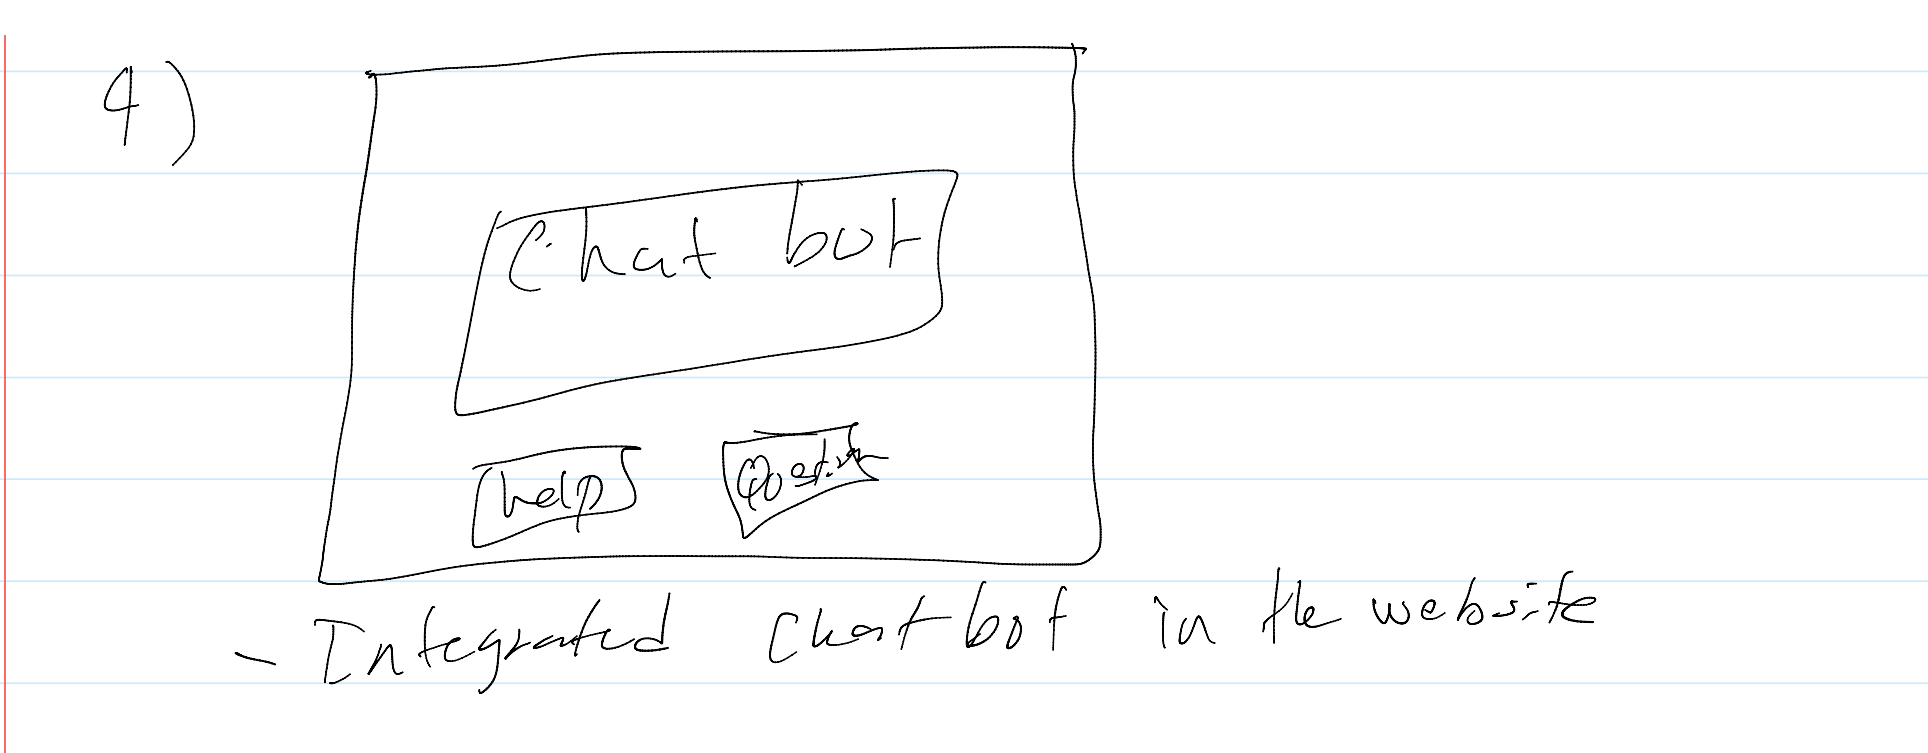 4)
Chat bot
help Question
- Integrated Chatbot in the website